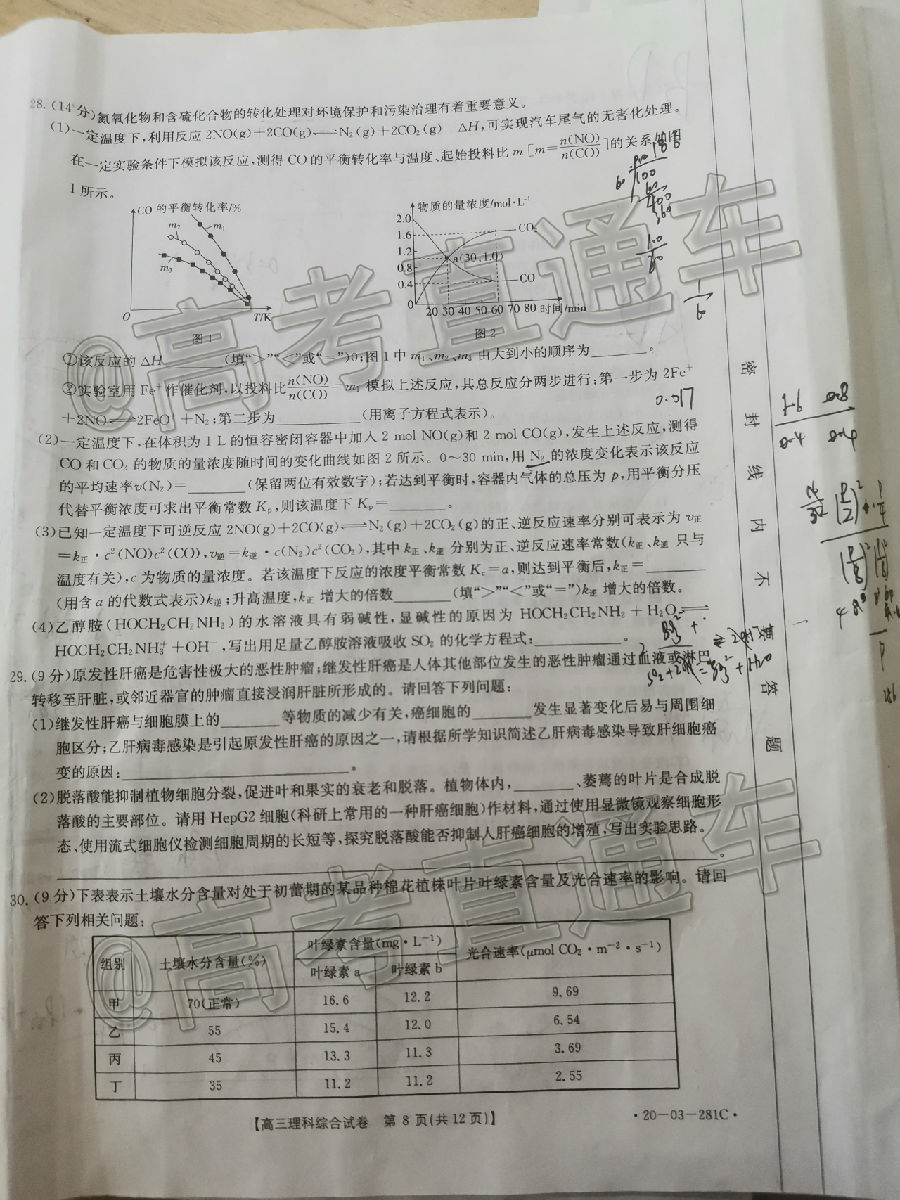 28.(14分)氮氧化物和含硫化合物的转化处理对环境保护和污染治理有着重要意义。
(1)一定温度下,利用反应 2NO(g)+2CO(g)⇌N₂(g)+2CO₂(g) ΔH,可实现汽车尾气的无害化处理。
在一定实验条件下模拟该反应,测得 CO 的平衡转化率与温度、起始投料比 m [m=n(NO)/n(CO)]的关系如图
1 所示。
CO 的平衡转化率/%
m₂
m₁
m₃
O
T/K
图1
物质的量浓度/mol·L⁻¹
2.0
1.6
1.2
0.8
0.4
0
CO₂
a(30,1.0)
CO
20 30 40 50 60 70 80 时间/min
图2
①该反应的 ΔH______(填“>”“<”或“=”)0;图 1 中 m₁、m₂、m₃ 由大到小的顺序为______。
作催化剂,以投料比 n(NO)/n(CO) 模拟上述反应,其总反应分两步进行:第一步为 2Fe⁺
+2NO⇌2FeO⁺+N₂;第二步为______(用离子方程式表示)。
0.017
(2)一定温度下,在体积为 1 L 的恒容密闭容器中加入 2 mol NO(g)和 2 mol CO(g),发生上述反应,测得
CO 和 CO₂ 的物质的量浓度随时间的变化曲线如图 2 所示。0~30 min,用 N₂ 的浓度变化表示该反应
的平均速率 v(N₂)=______(保留两位有效数字);若达到平衡时,容器内气体的总压为 p,用平衡分压
代替平衡浓度可求出平衡常数 Kₚ,则该温度下 Kₚ=______。
(3)已知一定温度下可逆反应 2NO(g)+2CO(g)⇌N₂(g)+2CO₂(g)的正、逆反应速率分别可表示为 v正
=k正·c²(NO)c²(CO),v逆=k逆·c(N₂)c²(CO₂),其中 k正、k逆 分别为正、逆反应速率常数(k正、k逆 只与
温度有关),c 为物质的量浓度。若该温度下反应的浓度平衡常数 K꜀=a,则达到平衡后,k正=______
(用含 a 的代数式表示)k逆;升高温度,k正 增大的倍数______(填“>”“<”或“=”)k逆 增大的倍数。
(4)乙醇胺(HOCH₂CH₂NH₂)的水溶液具有弱碱性,显碱性的原因为 HOCH₂CH₂NH₂+H₂O⇌
HOCH₂CH₂NH₃⁺+OH⁻,写出用足量乙醇胺溶液吸收 SO₂ 的化学方程式:______。
29.(9分)原发性肝癌是危害性极大的恶性肿瘤;继发性肝癌是人体其他部位发生的恶性肿瘤通过血液或淋巴
转移至肝脏,或邻近器官的肿瘤直接浸润肝脏所形成的。请回答下列问题:
(1)继发性肝癌与细胞膜上的______等物质的减少有关,癌细胞的______发生显著变化后易与周围细
胞区分;乙肝病毒感染是引起原发性肝癌的原因之一,请根据所学知识简述乙肝病毒感染导致肝细胞癌
变的原因:______。
(2)脱落酸能抑制植物细胞分裂,促进叶和果实的衰老和脱落。植物体内,______、萎蔫的叶片是合成脱
落酸的主要部位。请用 HepG2 细胞(科研上常用的一种肝癌细胞)作材料,通过使用显微镜观察细胞形
态,使用流式细胞仪检测细胞周期的长短等,探究脱落酸能否抑制人肝癌细胞的增殖,写出实验思路。
______。
30.(9分)下表表示土壤水分含量对处于初蕾期的某品种棉花植株叶片叶绿素含量及光合速率的影响。请回
答下列相关问题:
组别 土壤水分含量(%) 叶绿素含量(mg·L⁻¹) 光合速率(μmol CO₂·m⁻²·s⁻¹)
叶绿素 a 叶绿素 b
甲 70(正常) 16.6 12.2 9.69
乙 55 15.4 12.0 6.54
丙 45 13.3 11.3 3.69
丁 35 11.2 11.2 2.55
【高三理科综合试卷 第 8 页(共 12 页)】
·20-03-281C·
密封线内不要答题
1.6 0.8
0.4 0.4
@高考直通车
@高考直通车